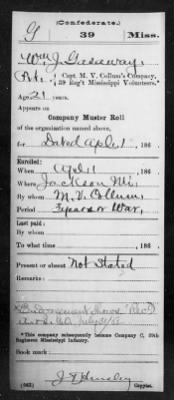 (Confederate.)
G 39 Miss.
Wm J. Gasaway
Pvt., Capt. M. V. Collum's Company,
39 Reg't Mississippi Volunteers.*
Age 21 years.
Appears on
Company Muster Roll
of the organization named above,
for Dated Apl 1, 186 .
Enlisted:
When Apl 1, 186 .
Where Jackson Mi.
By M. V. Collum
Period 3 years or War.
Last paid:
By
To what time , 186 .
Present or absent Not Stated
Remarks:
Endorsement shows "Rec'd
*This company subsequently became Company C, 39th
Regiment Mississippi Infantry.
Book mark:
(642) Copyist.